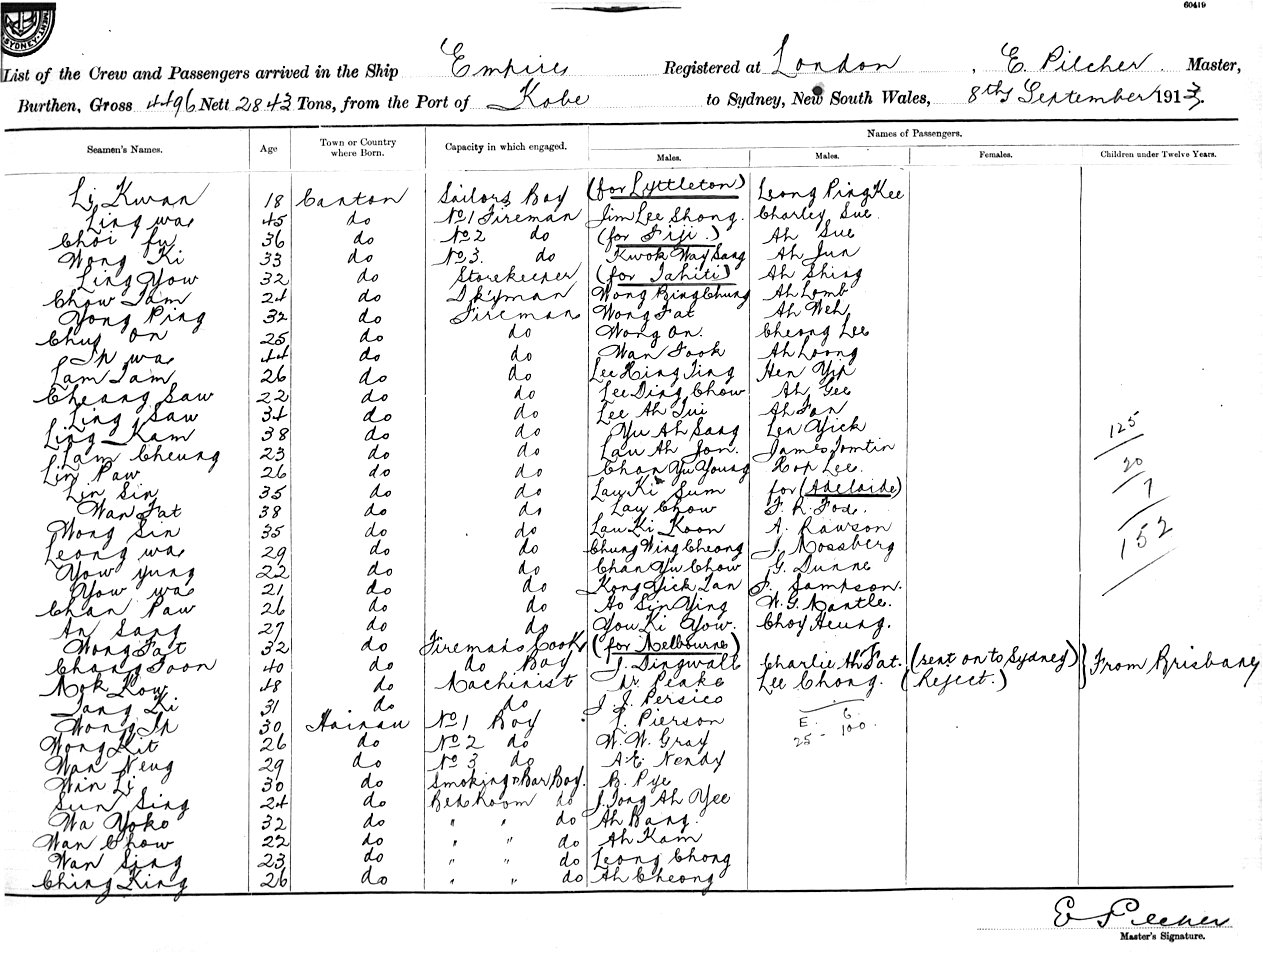 60419
SYDNEY
List of the Crew and Passengers arrived in the Ship Empire Registered at London, E. Pilcher. Master,
Burthen, Gross 4496 Nett 2843 Tons, from the Port of Kobe to Sydney, New South Wales, 8th September 1913.
Names of Passengers.
Seamen's Names. Age Town or Country where Born. Capacity in which engaged. Males. Males. Females. Children under Twelve Years.
Li Kwan 18 Canton Sailors Boy (for Lyttleton) Leong Ping Kee
Ling wa 45 do No 1 Fireman Jim Lee Shong. Charley Sue.
Choi fu 36 do No 2 do (for Fiji.) Ah Sue
Wong Ki 33 do No 3. do Kwok Way Sang Ah Jun
Ling Yow 32 do Storekeeper (for Tahiti) Ah Shing
Chow Tam 24 do Dkyman Wong Bing Chung Ah Lomb
Yong Ping 32 do Fireman Wong Fat Ah Weh
Chug On 25 do do Wong On. Cheong Lee
Ip wa 44 do do Wan Fook Ah Loong
Lam Tam 26 do do Lee Hing Ting Hen Yip
Cheang Saw 22 do do Lee Ding Chow Ah Gee
Ling Saw 34 do do Lee Ah Tui Ah Fan
Ling Kam 38 do do Yu Ah Sang Len Yick
Lam Cheung 23 do do Lau Ah Jon. James Tomtin
Lin Paw 26 do do Chan Yu Young Hop Lee.
Lin Sin 35 do do Lay Ki Sum for (Adelaide)
Wan Fat 38 do do Lay Chow F. R. Fox.
Wong Sin 35 do do Lau Ki Koon A. Rawson
Leong wa 29 do do Chung Wing Cheong J. Mossberg
Yow yung 22 do do Chan Yu Chow G. Dunne
Yow wa 21 do do Kong Yick Tan F. Sampson.
Chan Paw 26 do do Ho Sin Ying W. G. Mantle.
An Sang 27 do do You Ki Yow. Choy Heung.
Wong Fat 32 do Fireman's Cook (for Melbourne)
Chang Foon 40 do do Boy J. Dingwall Charlie Ah Fat. (sent on to Sydney) } From Brisbane
Mok Kow 48 do Machinist Mr. Peake Lee Chong. (Reject.)
Tang Ki 31 do do J. J. Persico
Wong Ip 30 Hainan No 1 Boy J. Pierson E. 6.
Wong Kit 26 do No 2 do W. W. Gray 25 - 100.
Wan Neng 29 do No 3 do A. E. Nendy
Win Li 30 do Smoking & Bar Boy. B. Pye
Sun Sing 24 do Bed Room do J. Tong Ah Yee
Wa Yoko 32 do " " do Ah Bang.
Wan Chow 22 do " " do Ah Kam
Wan Sing 23 do " " do Leong Chong
Ching King 26 do " " do Ah Cheong
125
20
7
152
E Pilcher
Master's Signature.